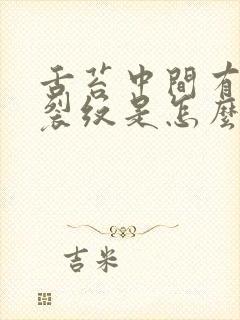 舌苔中間有
裂纹是怎麼
吉米